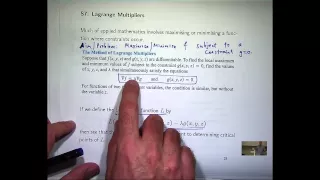 S7: Lagrange Multipliers
Much of applied mathematics involves maximising or minimising a func-
tion where constraints occur.
Aim/Problem: Maximise/Minimise f subject to a
constraint g=0.
The Method of Lagrange Multipliers
Suppose that f(x, y, z) and g(x, y, z) are differentiable. To find the local maximum
and minimum values of f subject to the constraint g(x, y, z) = 0, find the values
of x, y, z, and λ that simultaneously satisfy the equations
∇f = λ∇g and g(x, y, z) = 0.
For functions of two variables, the condition is similar, but without
the variable z.
If we define the function
f(x, y, z) − λg(x, y, z)
then we see that to determining critical
points of